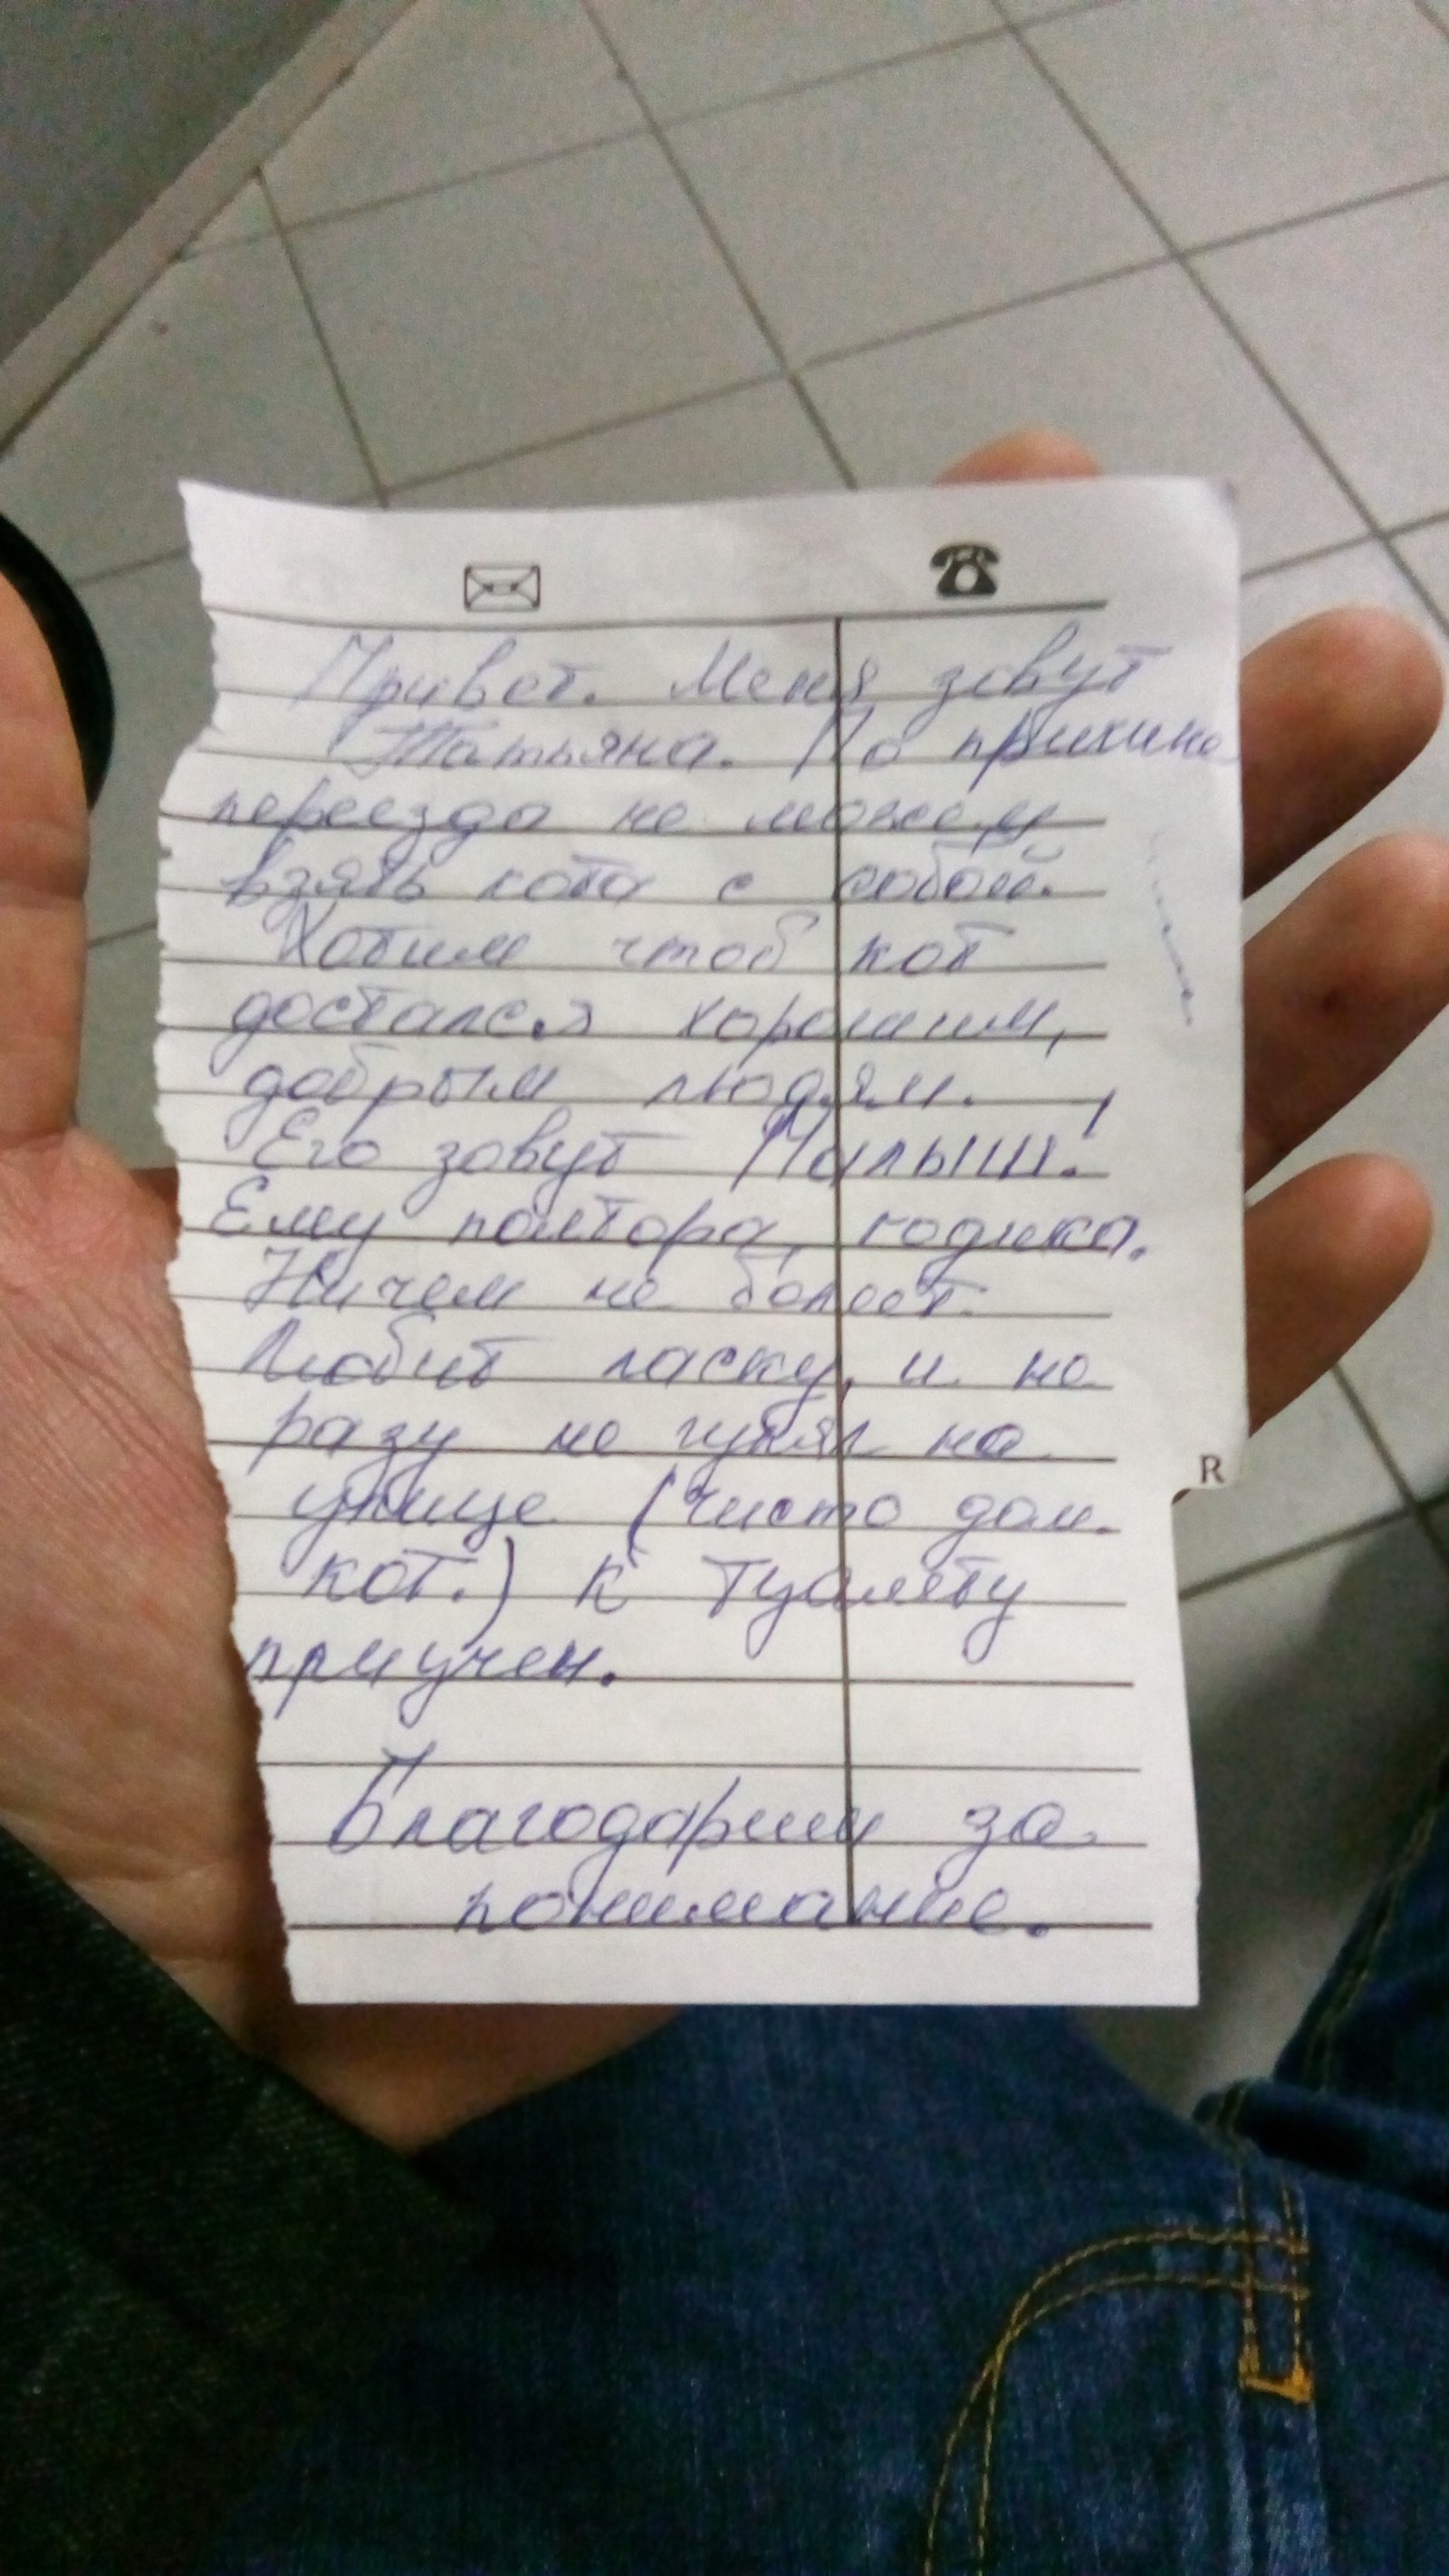 Привет. Меня зовут
Татьяна. По причине
переезда не можем
взять кота с собой.
Хотим чтоб кот
достался хорошим,
добрым людям.
Его зовут Малыш.
Ему полтора годика.
Ничем не болеет.
Любит ласку, и не
разу не гулял на
улице (чисто дом.
кот.) К туалету
приучен.
R
Благодарим за
понимание.